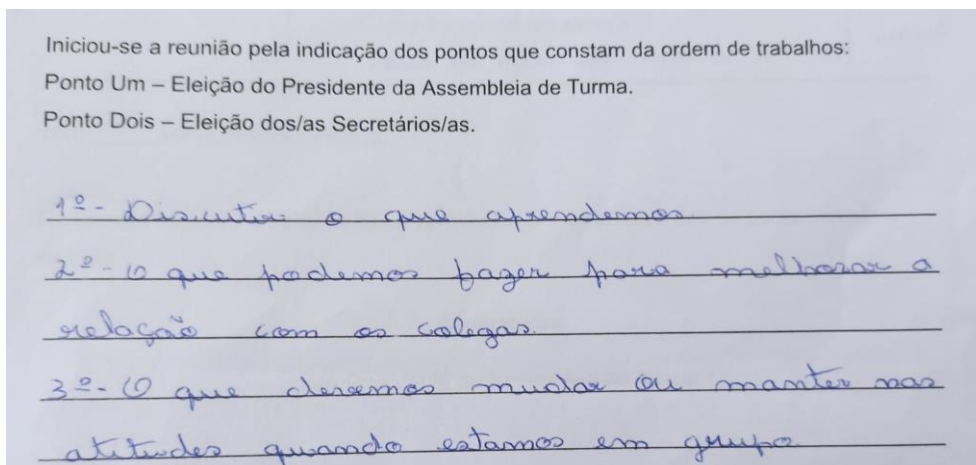 Iniciou-se a reunião pela indicação dos pontos que constam da ordem de trabalhos:
Ponto Um – Eleição do Presidente da Assembleia de Turma.
Ponto Dois – Eleição dos/as Secretários/as.
1º - Discutir o que aprendemos.
2º - O que podemos fazer para melhorar a
relação com os colegas.
3º - O que devemos mudar ou manter nas
atitudes quando estamos em grupo.